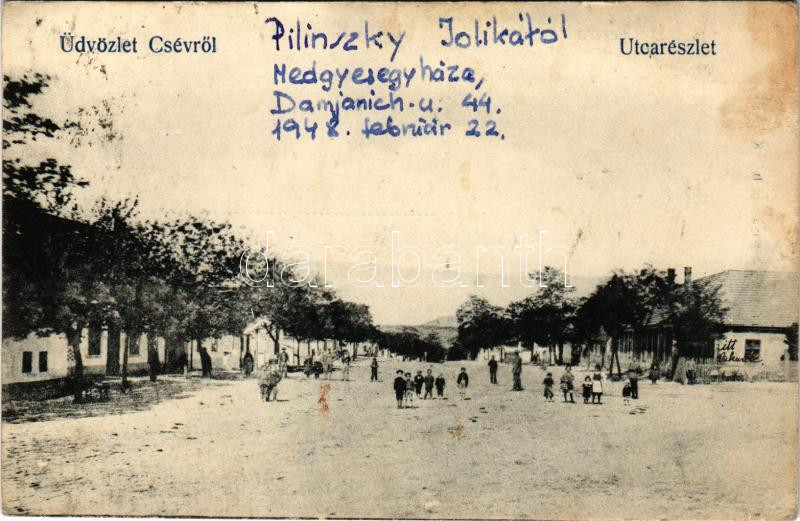 Üdvözlet Csévről
Pilinszky Jolikától
Medgyesegyháza,
Damjanich-u. 44.
1948. február 22.
Utcarészlet
darabanth
itt